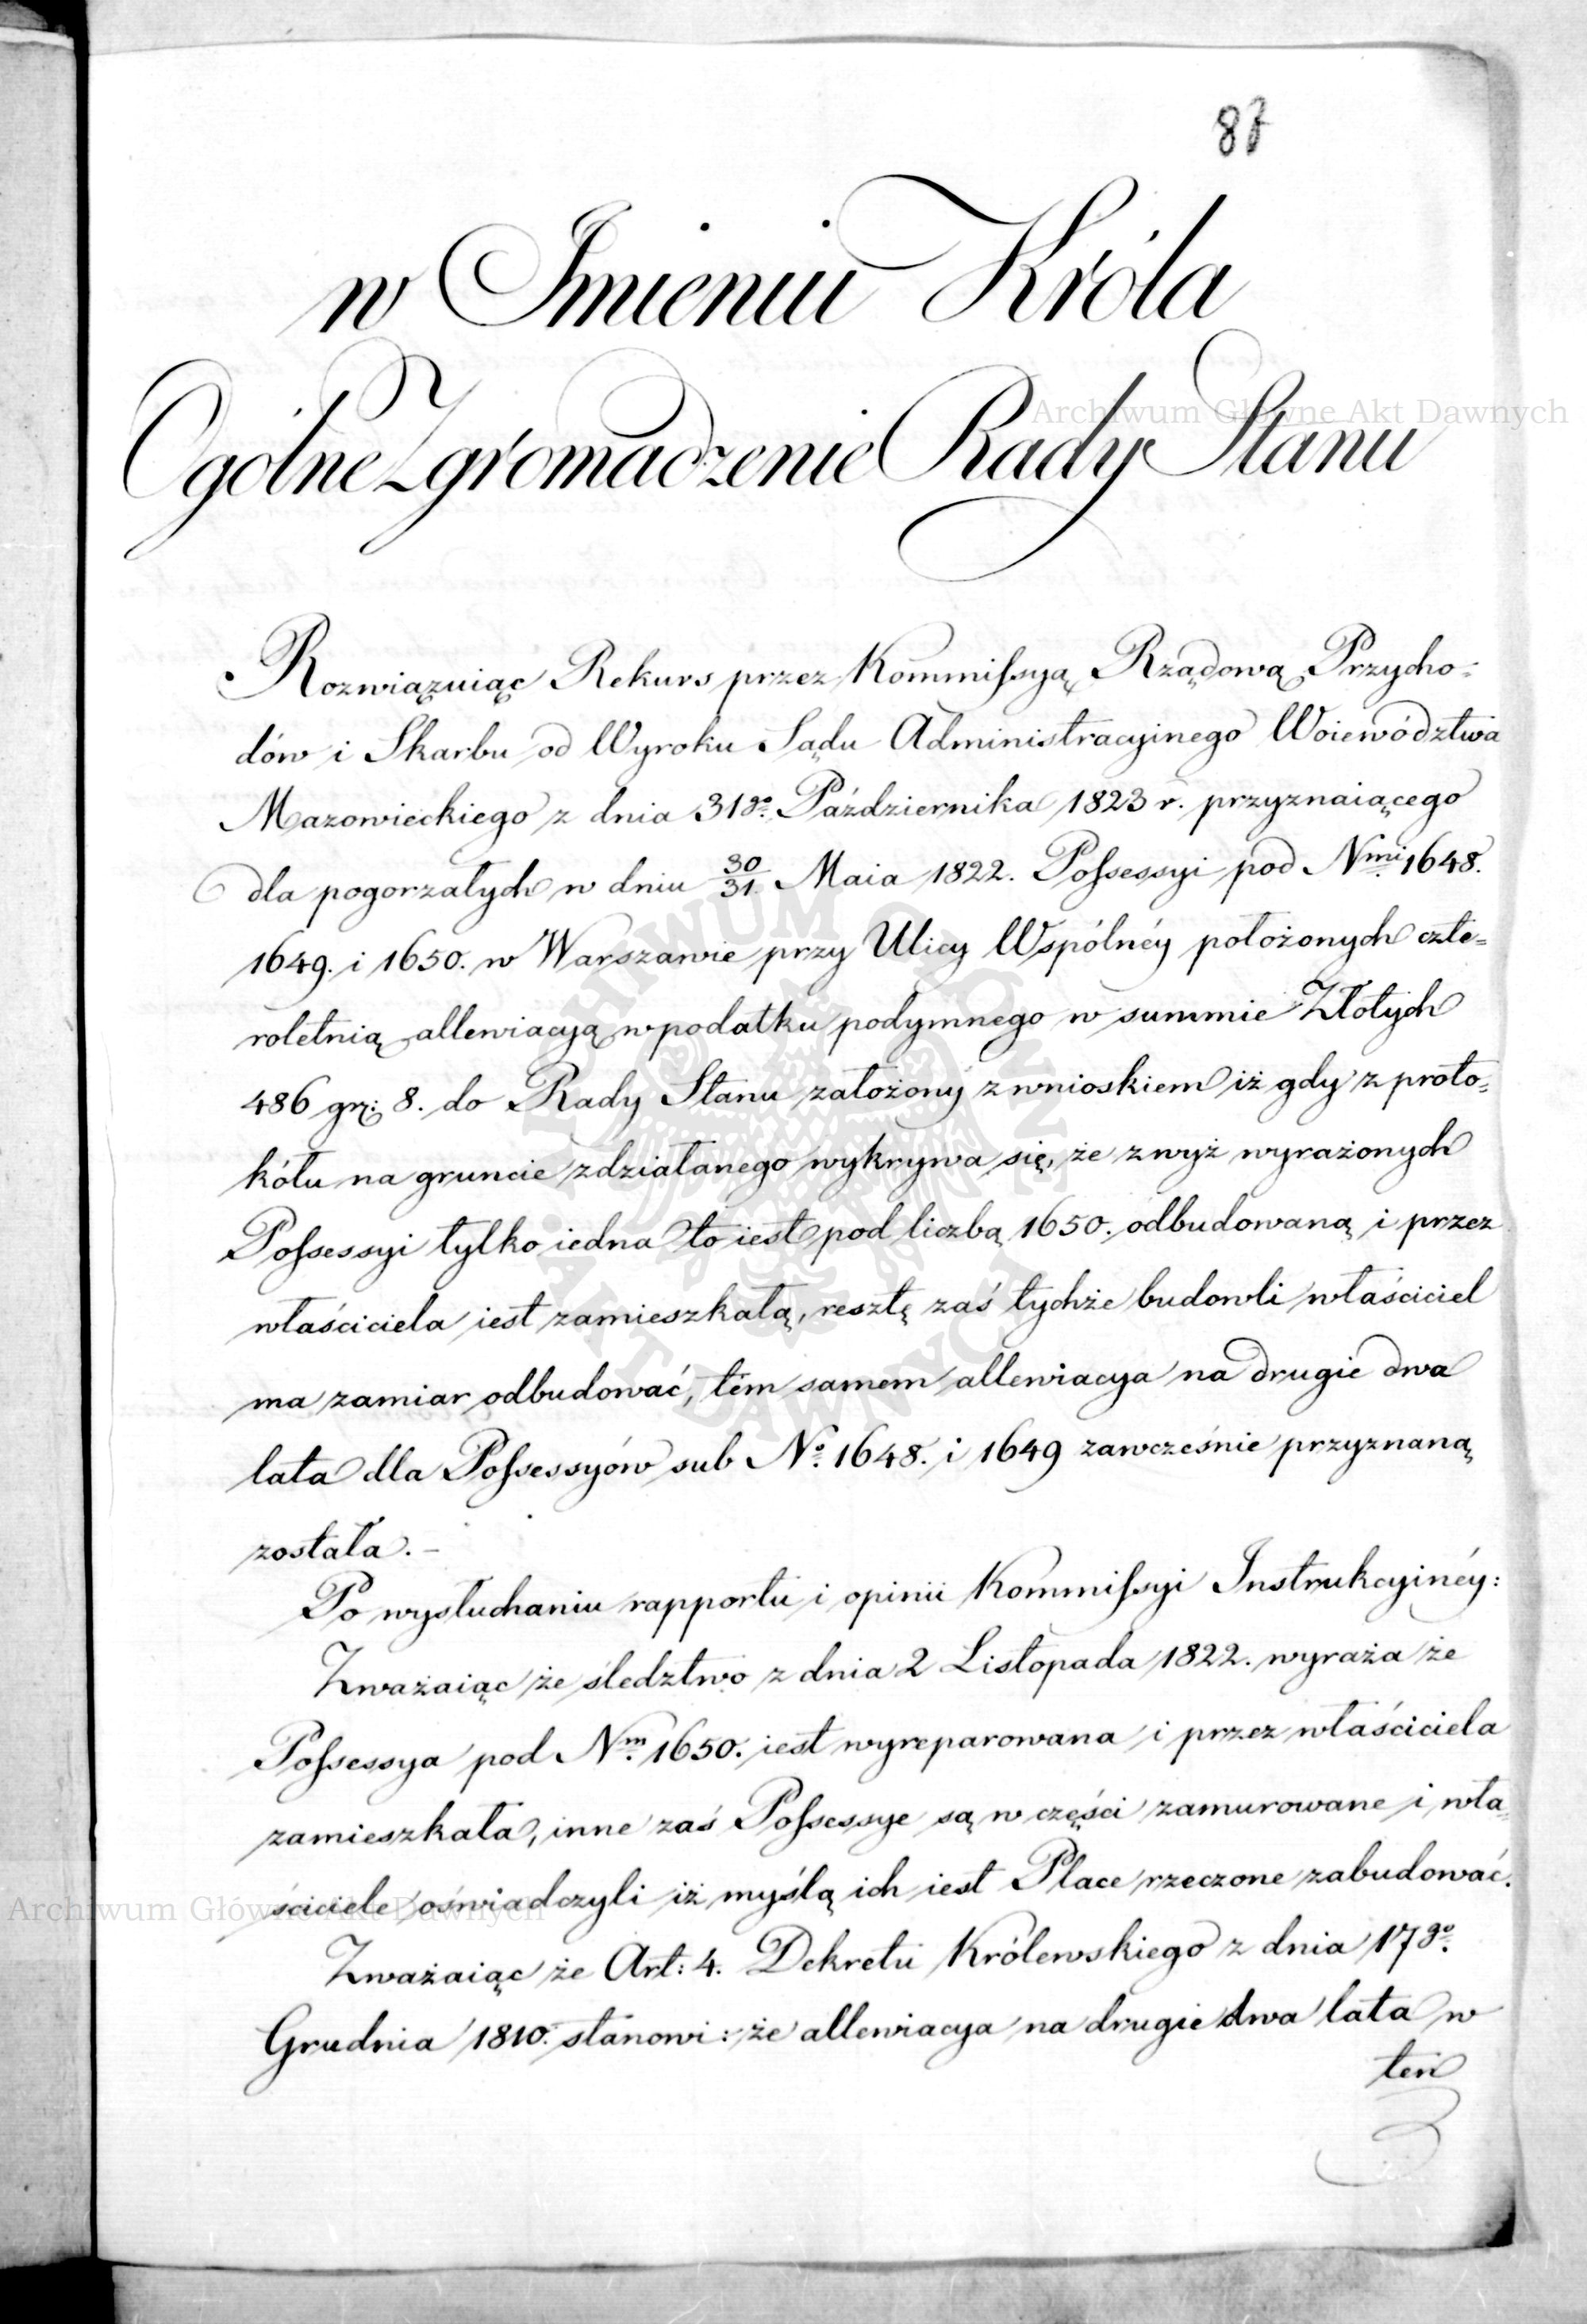 87
w Imieniu Króla
Ogólne Zgromadzenie Rady Stanu
Rozwiązuiąc Rekurs przez Kommissyą Rządową Przycho-
dów i Skarbu od Wyroku Sądu Administracyinego Woiewództwa
Mazowieckiego z dnia 31go Października 1823 r. przyznaiącego
dla pogorzałych w dniu 30/31. Maia 1822. Possessyi pod Nrmi 1648.
1649. i 1650. w Warszawie przy Ulicy Wspólnéy położonych czte-
roletnią allewiacyą w podatku podymnego w summie Złotych
486 gr: 8. do Rady Stanu założony z wnioskiem iż gdy z proto-
kółu na gruncie zdziałanego wykrywa się, że z wyż wyrażonych
Possessyi tylko iedna to iest pod liczbą 1650. odbudowaną i przez
właściciela iest zamieszkałą, resztę zaś tychże budowli właściciel
ma zamiar odbudować, tém samem allewiacya na drugie dwa
lata dla Possessyów sub No. 1648. i 1649 zawcześnie przyznaną
została. -
Po wysłuchaniu rapportu i opinii Kommissyi Instrukcyinéy:
Zważaiąc że śledztwo z dnia 2 Listopada 1822. wyraża że
Possessya pod Nrm 1650. iest wyreparowana i przez właściciela
zamieszkała, inne zaś Possessye są w części zamurowane i wła-
ściciele oświadczyli iż myślą ich iest Place rzeczone zabudować.
Zważaiąc że Art: 4. Dekretu Królewskiego z dnia 17go.
Grudnia 1810. stanowi: że allewiacya na drugie dwa lata w
ten
Archiwum Główne Akt Dawnych
Archiwum Główne Akt Dawnych
ARCHIWUM GŁÓWNE AKT DAWNYCH